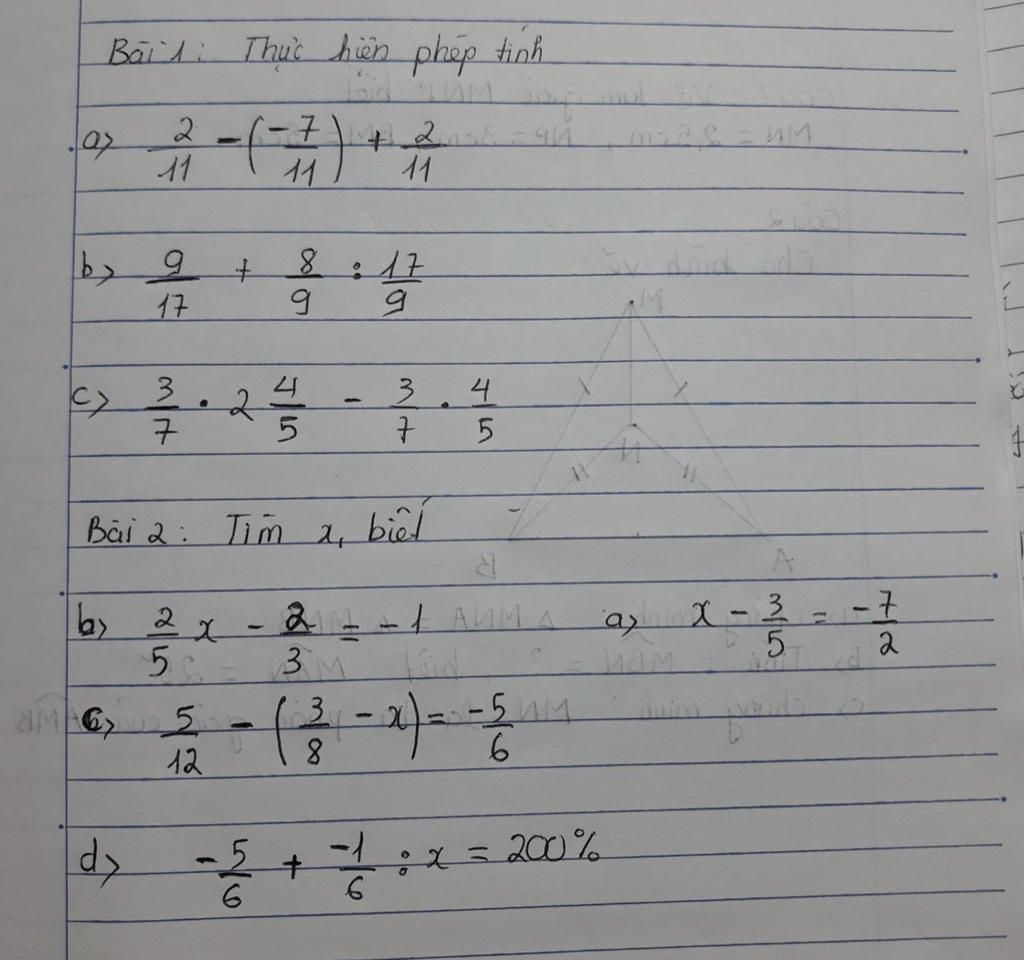 Bài 1: Thực hiện phép tính
a) 2/11 - (-7/11) + 2/11
b) 9/17 + 8/9 : 17/9
c) 3/7 . 2 4/5 - 3/7 . 4/5
Bài 2: Tìm x, biết
b) 2/5 x - 2/3 = -1 a) x - 3/5 = -7/2
c) 5/12 - (3/8 - x) = -5/6
d) -5/6 + -1/6 : x = 200%